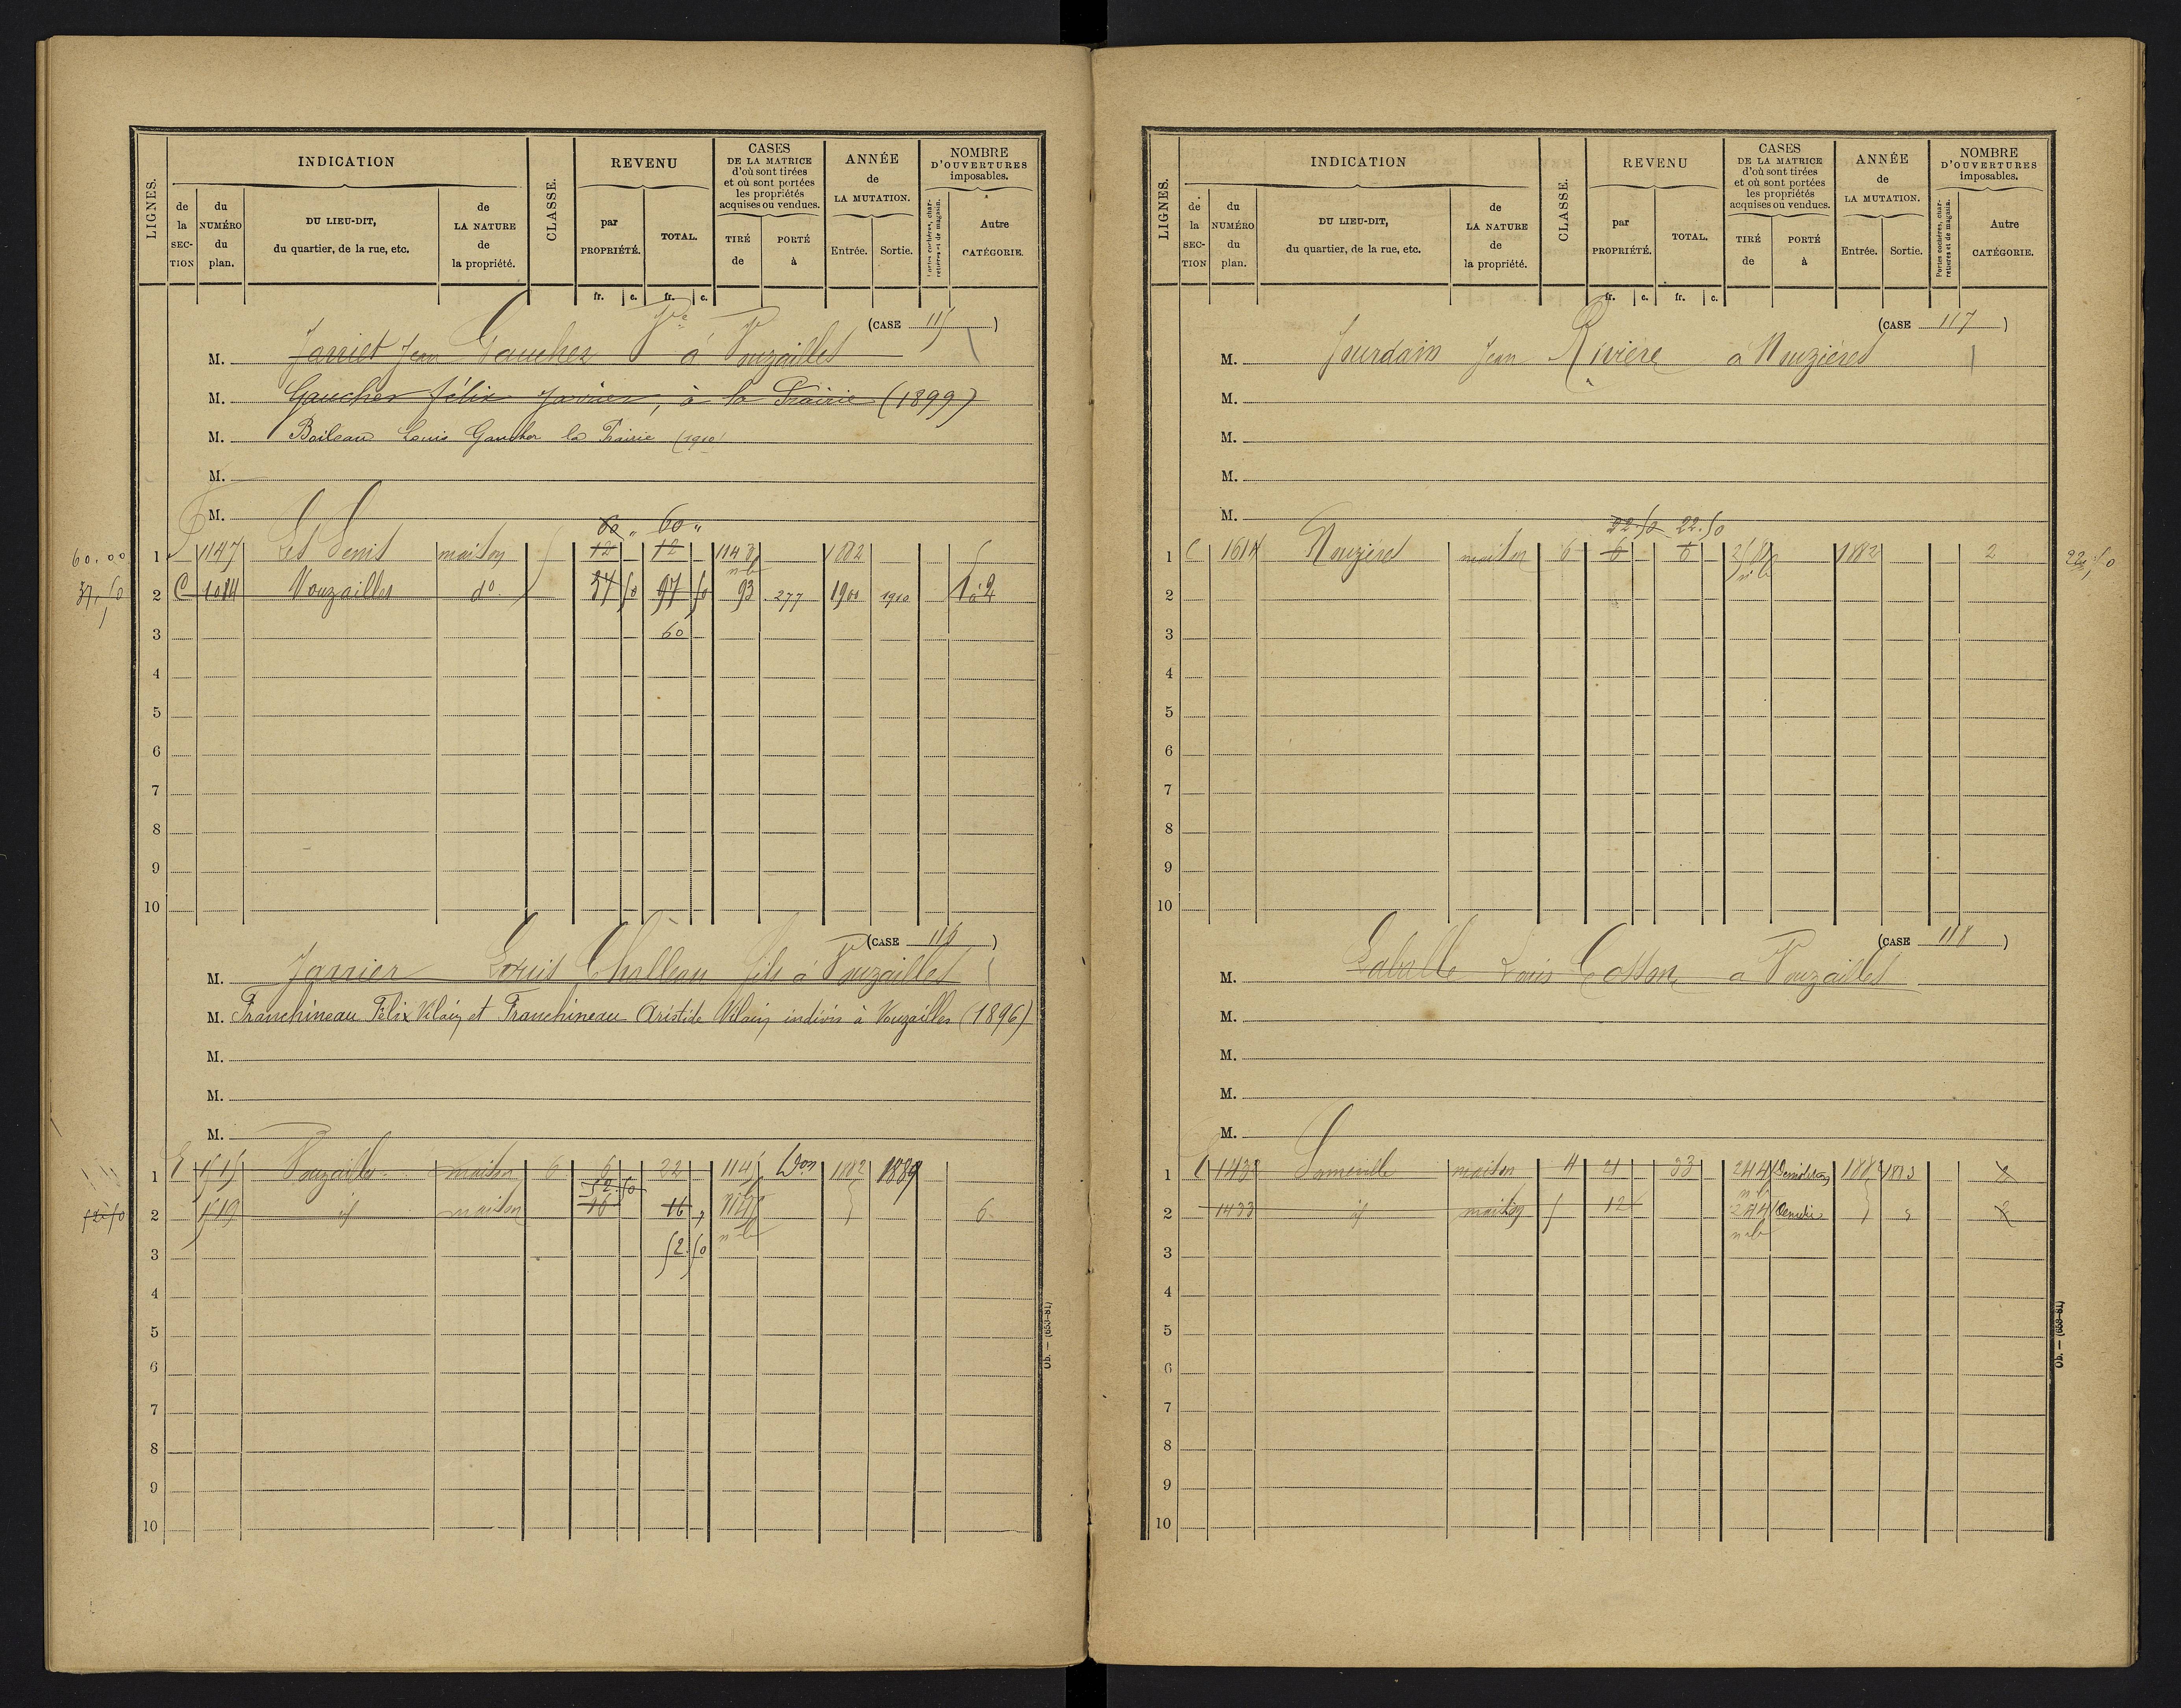 LIGNES. INDICATION CLASSE. REVENU CASES DE LA MATRICE d'où sont tirées et où sont portées les propriétés acquises ou vendues. ANNÉE de LA MUTATION. NOMBRE D'OUVERTURES imposables.
de la SEC-TION du NUMÉRO du plan. DU LIEU-DIT, du quartier, de la rue, etc. de LA NATURE de la propriété. par PROPRIÉTÉ. TOTAL. TIRÉ de PORTÉ à Entrée. Sortie. Portes cochères, charretières et de magasin. Autre CATÉGORIE.
fr. c. fr. c.
(CASE 115)
M. Jean Gaucher à Vouzailles
M. Gaucher félix à la Prairie (1899)
M. Boileau Louis Gaucher la Prairie (1910)
M.
M.
60 " 60 "
60.00 1 1147 maison 12 12 1143 1882
n-b
37,50 2 C 1084 Vouzailles do 37 50 97 50 93 277 1900 1910 1 à 2
3 60
4
5
6
7
8
9
10
(CASE 116)
M. Janrier Louis fils à Vouzailles
M. Franchineau Félix Vilain et Franchineau Aristide Vilain indivis à Vouzailles (1896)
M.
M.
M.
1 1515 Vouzailles maison 6 6 22 1145 Don 1882 1889
52.50
52.50 2 1519 id maison 16 16 6
3 52.50 n-b
4
5
6
7
8
9
10
Ob. — (653-81)
LIGNES. INDICATION CLASSE. REVENU CASES DE LA MATRICE d'où sont tirées et où sont portées les propriétés acquises ou vendues. ANNÉE de LA MUTATION. NOMBRE D'OUVERTURES imposables.
de la SEC-TION du NUMÉRO du plan. DU LIEU-DIT, du quartier, de la rue, etc. de LA NATURE de la propriété. par PROPRIÉTÉ. TOTAL. TIRÉ de PORTÉ à Entrée. Sortie. Portes cochères, charretières et de magasin. Autre CATÉGORIE.
fr. c. fr. c.
(CASE 117)
M. Jourdain Jean Rivière à Nouzières
M.
M.
M.
M.
22.50 22.50
1 C 1614 Nouzières maison 6 6 6 1882 2 22,50
n-b
2
3
4
5
6
7
8
9
10
(CASE 118)
M. Labelle Louis Cosson a Vouzailles
M.
M.
M.
M.
1 C 1432 maison 4 21 33 244 Démolition 1882 1893 2
n-b
2 1433 id maison 5 12 244 Démolie 2
n-b
3
4
5
6
7
8
9
10
Ob. — (653-81)